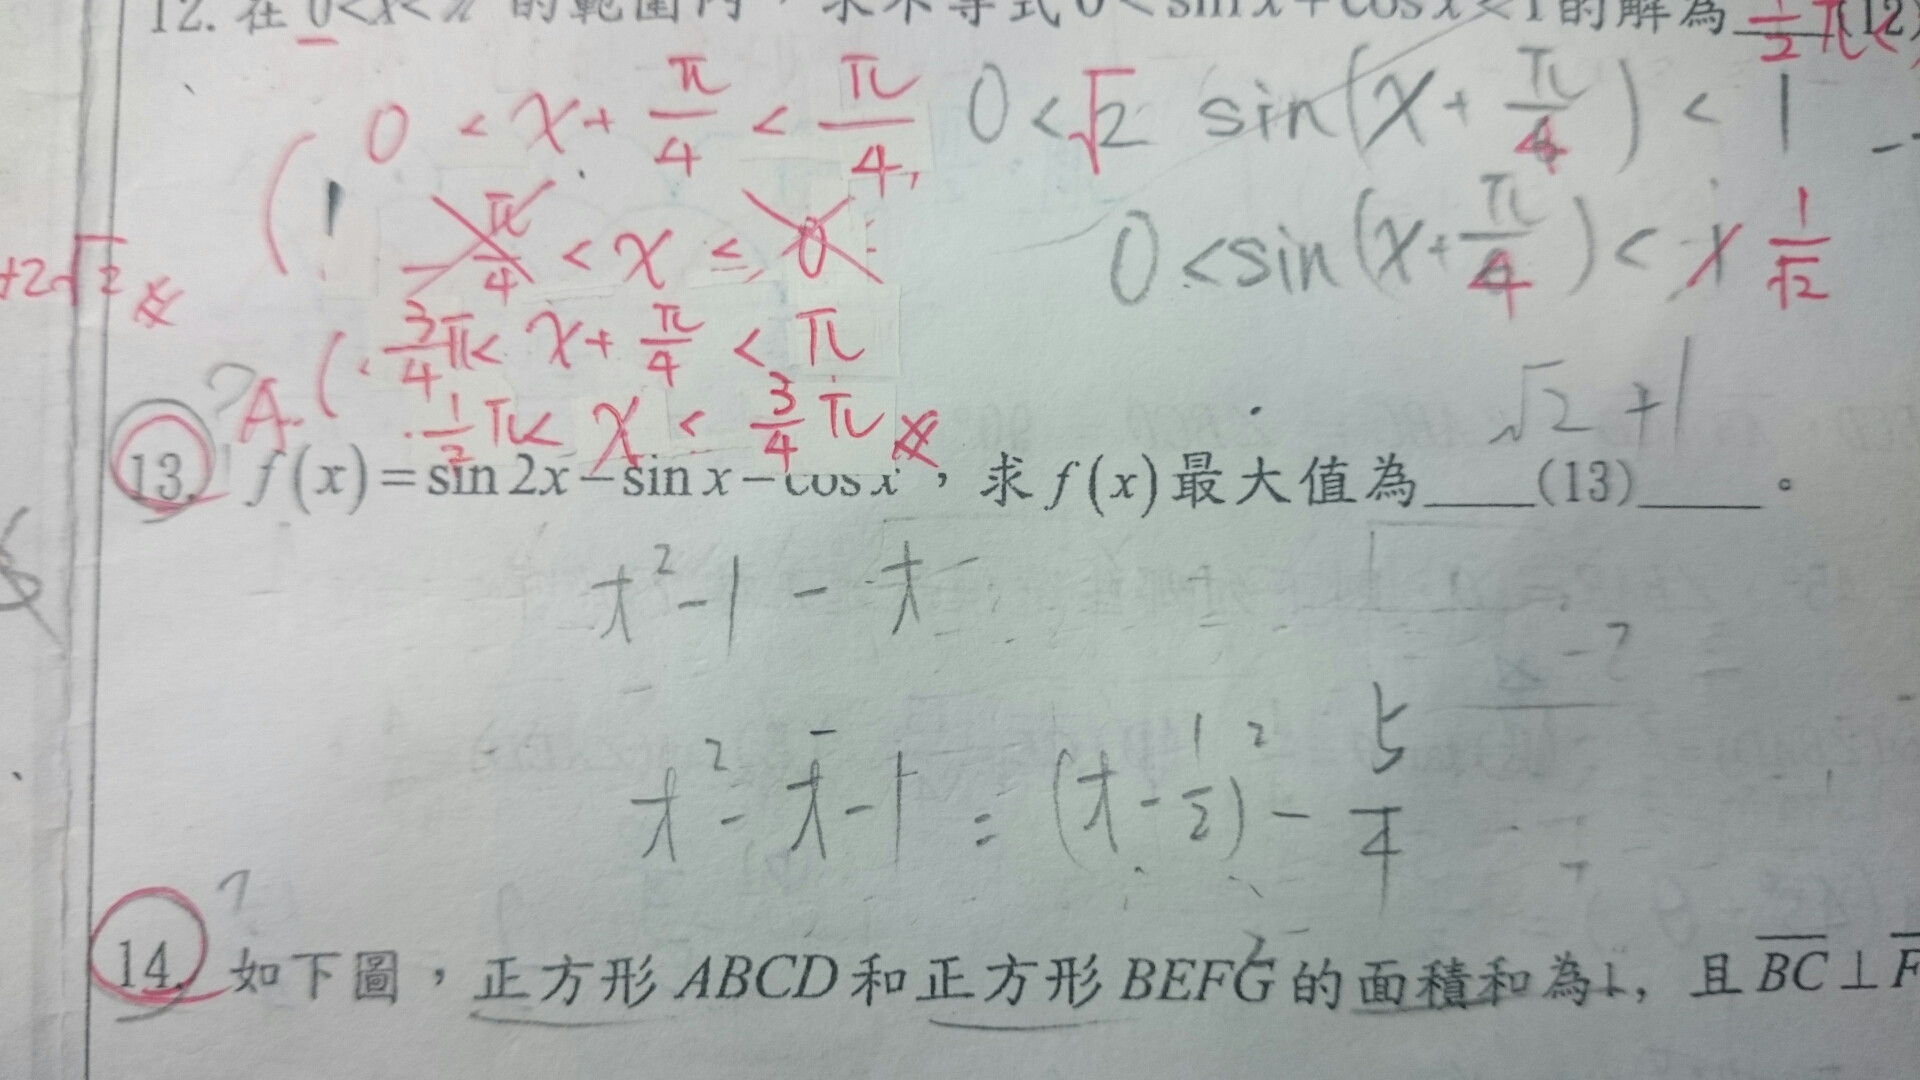 12. 在 0<x<π 的範圍內，求不等式 0<sin x+cos x<1 的解為 ½π< (12)
0 < x + π/4 < π/4, 0 < √2 sin(x + π/4) < 1
-π/4 < x ≤ 0 0 < sin(x + π/4) < 1/√2
+2√2
3/4π < x + π/4 < π
? A. 1/2π < x < 3/4π √2 + 1
13. f(x)=sin 2x-sin x-cos x，求 f(x) 最大值為____(13)____。
t² - 1 - t
t² - t - 1 = (t - 1/2)² - 5/4
?
14. 如下圖，正方形 ABCD 和正方形 BEFG 的面積和為1，且 BC ⊥ F